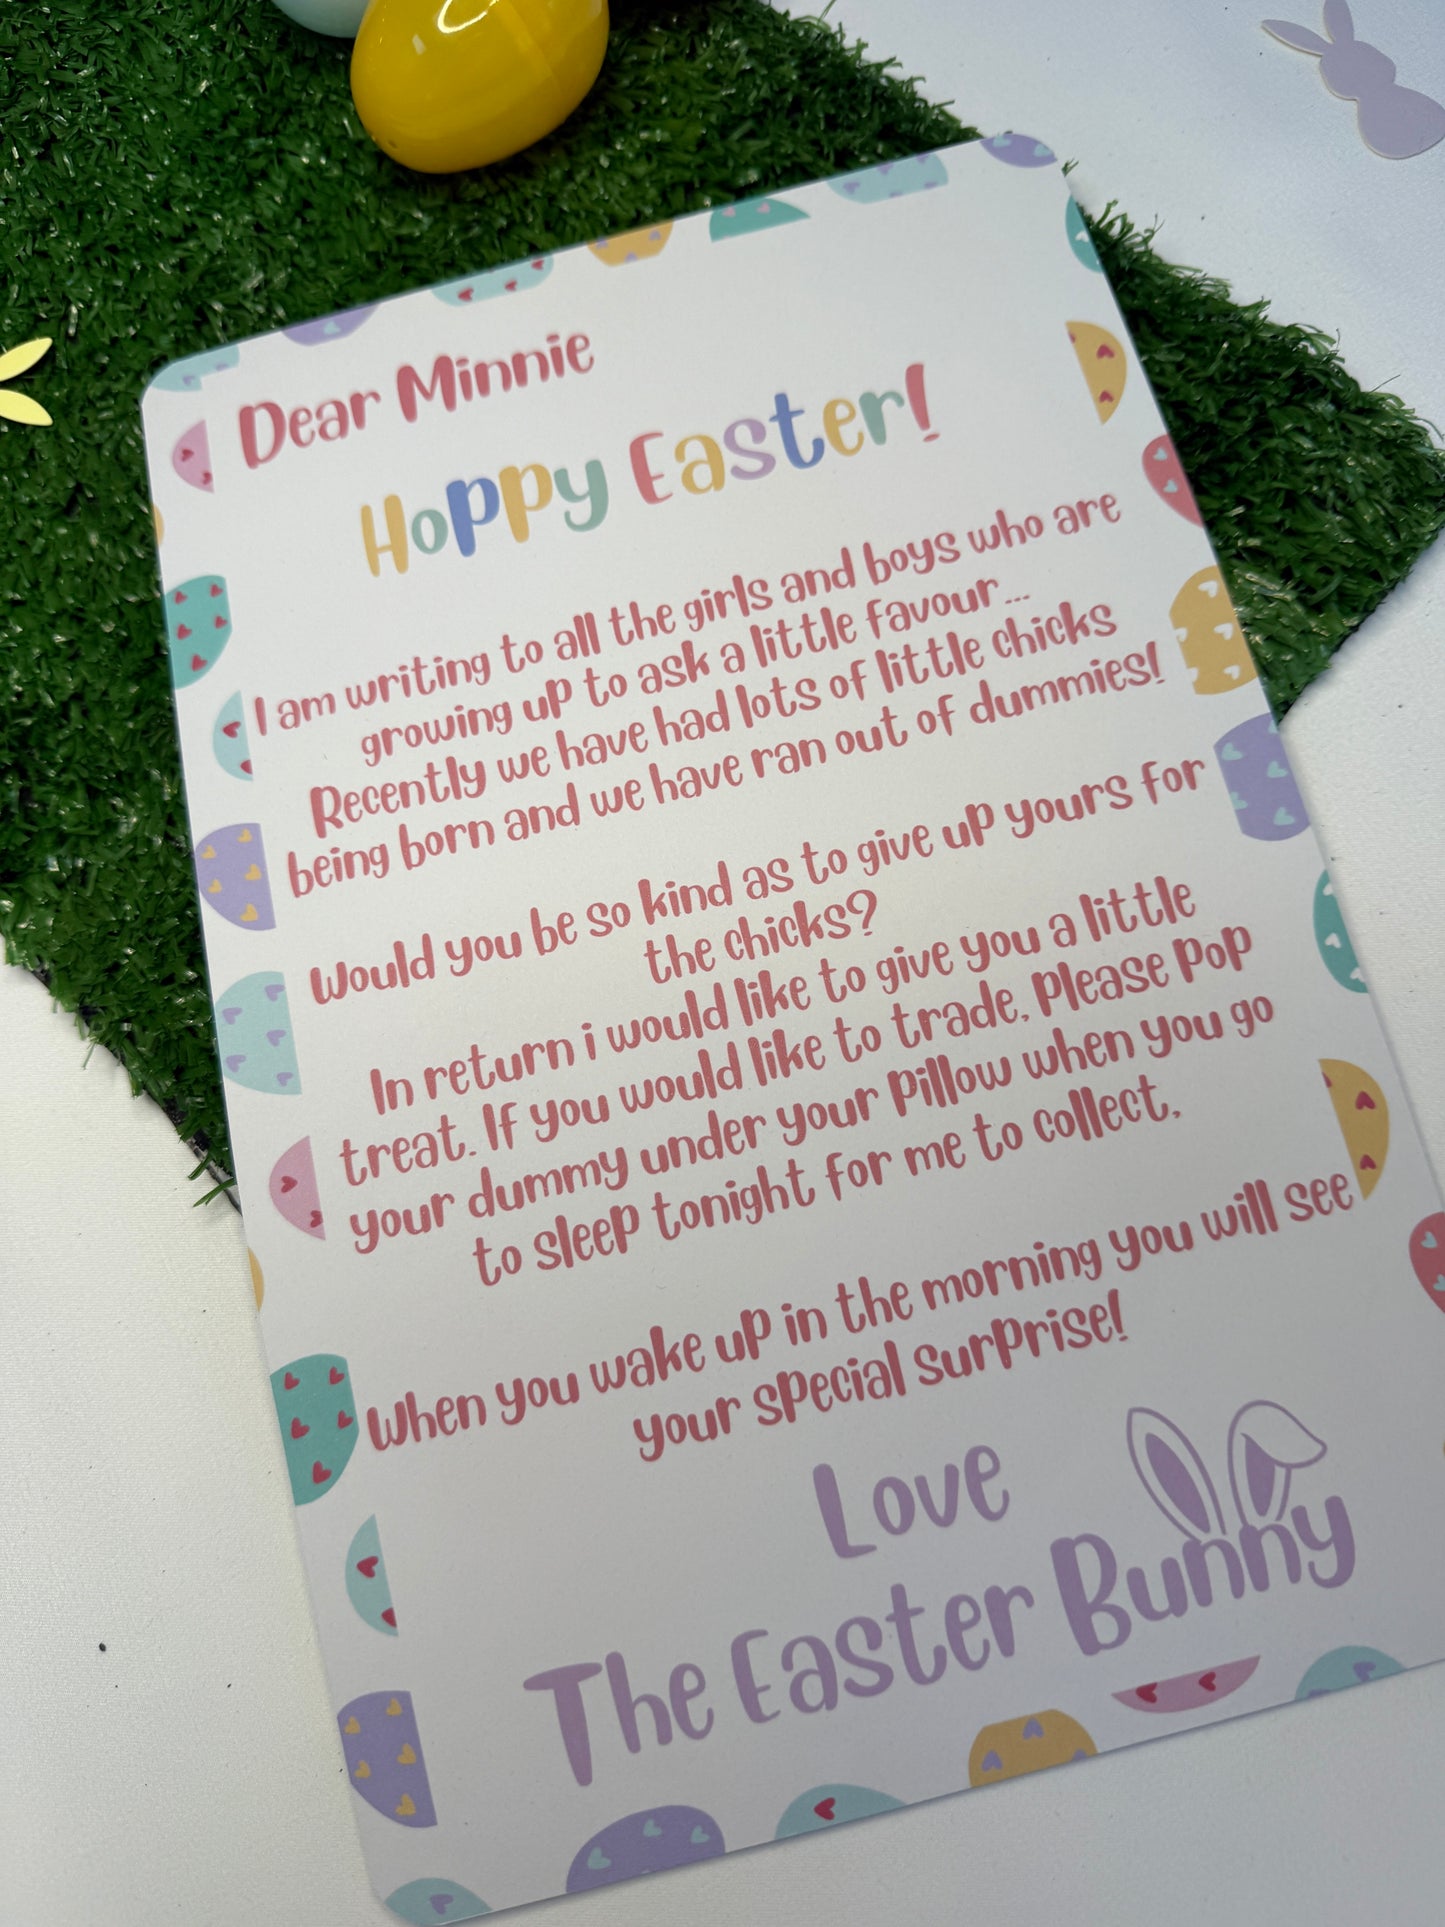 Dear Minnie
Hoppy Easter!
I am writing to all the girls and boys who are
growing up to ask a little favour...
Recently we have had lots of little chicks
being born and we have ran out of dummies!
Would you be so kind as to give up yours for
the chicks?
In return i would like to give you a little
treat. If you would like to trade, Please Pop
your dummy under your pillow when you go
to sleep tonight for me to collect,
When you wake up in the morning you will see
your special surprise!
Love
The Easter Bunny